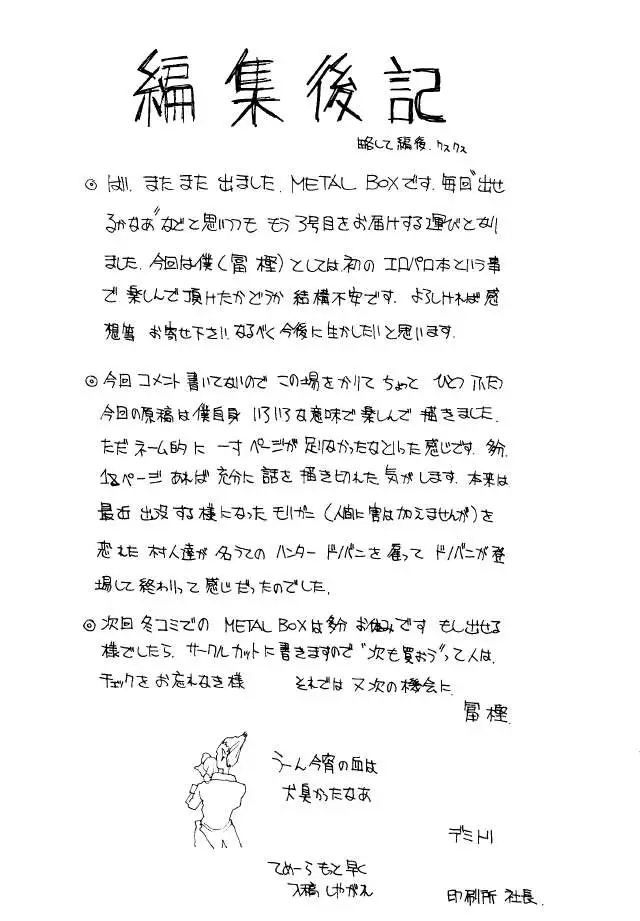 編集後記
略して編後、クスクス
◎ はい、またまた 出ました、METAL BOXです。毎回“出せ
るかなあ”などと思いつつも もう3号目をお届けする運びとなり
ました。今回は僕(冨樫)としては初の エロパロ本という事
で 楽しんで頂けたかどうか 結構不安です。よろしければ感
想等 お寄せ下さい。なるべく今後に生かしたいと思います。
◎ 今回 コメント 書いてないので この場をかりて ちょっと ひとつ ふたつ
今回の原稿は僕自身 いろいろな意味で楽しんで 描きました。
ただ ネーム的に 一寸 ページが 足りなかったなといった感じです。多分、
12ページ あれば 充分に 話を 描き切れた 気がします。本来は
最近 出没 する様になった モリガン(人間に害は加えませんが)を
恐れた 村人達が 名うての ハンター ドノバンを 雇って ドノバンが登
場して 終わりって 感じだったのでした。
◎ 次回 冬コミでの METAL BOXは多分 お休みです もし出せる
様でしたら、サークルカットに書きますので“次も買おう”って人は、
チェックを お忘れなき様 それでは 又次の機会に。
冨樫
うーん今宵の血は
犬臭かったなあ
デミトリ
てめーら もっと早く
入稿 しやがれ
印刷所 社長.